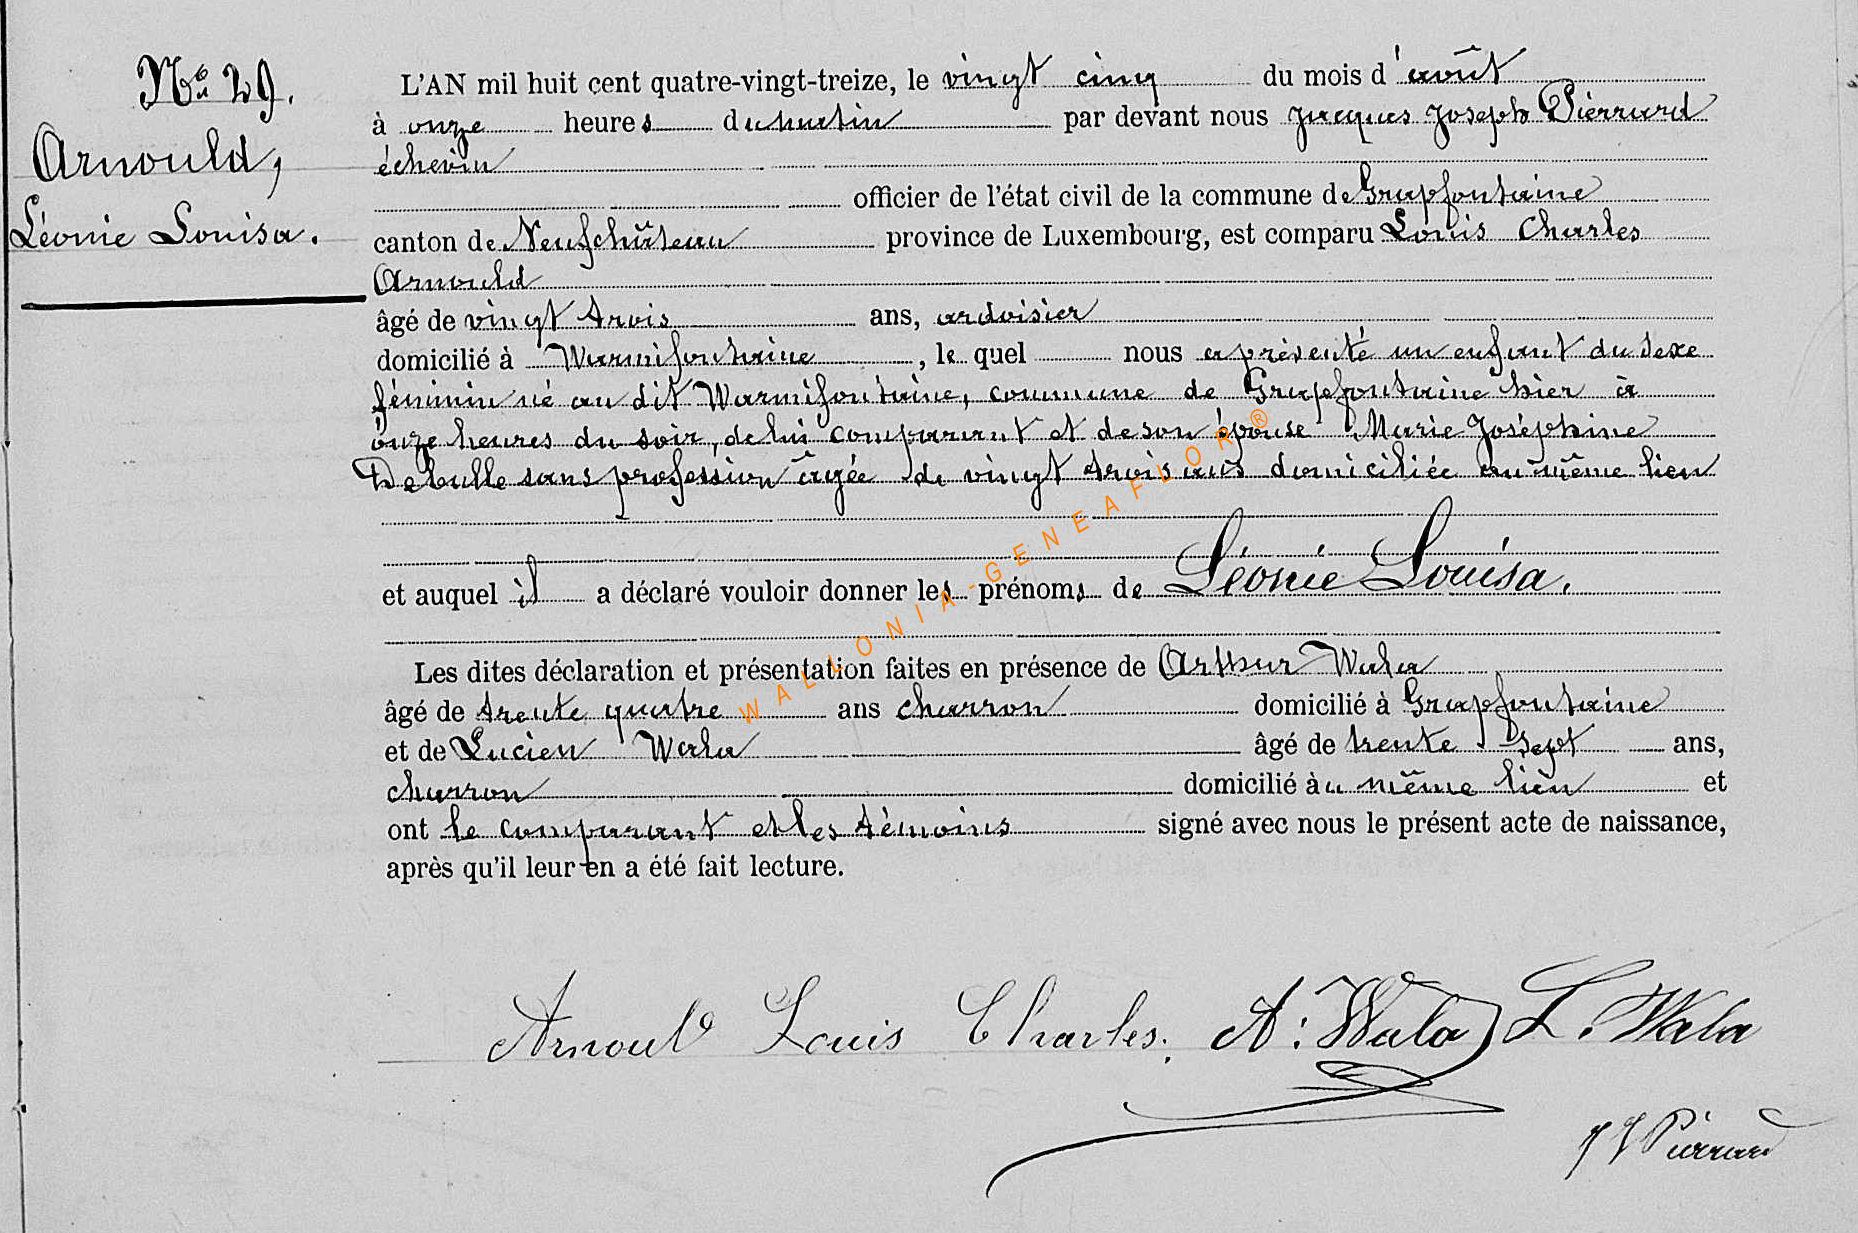 No 29.
Arnould,
Léonie Louisa.
L'AN mil huit cent quatre-vingt-treize, le vingt cinq du mois d'août
à onze heures du matin par devant nous Jacques Joseph Pierrard
échevin
officier de l'état civil de la commune de Grapfontaine
canton de Neufchâteau province de Luxembourg, est comparu Louis Charles
Arnould
âgé de vingt trois ans, ardoisier
domicilié à Warmifontaine, le quel nous a présenté un enfant du sexe
féminin né au dit Warmifontaine, commune de Grapfontaine hier à
onze heures du soir, de lui comparant et de son épouse Marie Joséphine
Dehulle sans profession âgée de vingt trois ans domiciliée au même lieu
et auquel il a déclaré vouloir donner les prénoms de Léonie Louisa.
Les dites déclaration et présentation faites en présence de Arthur Wala
âgé de trente quatre ans charron domicilié à Grapfontaine
et de Lucien Wala âgé de trente sept ans,
charron domicilié au même lieu et
ont le comparant et les témoins signé avec nous le présent acte de naissance,
après qu'il leur en a été fait lecture.
WALLONIA-GENEAFLOR®
Arnould Louis Charles. A: Wala L. Wala
J J Pierrard